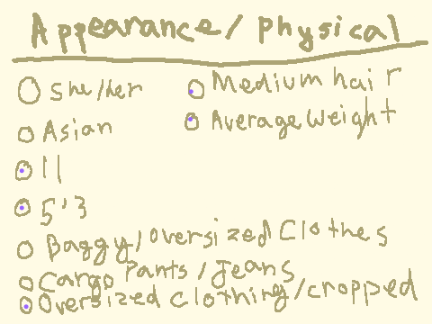 Appearance/Physical
She/her
Asian
11
5'3
Baggy/oversized Clothes
Cargo Pants/Jeans
Oversized Clothing/cropped
Medium hair
Average Weight